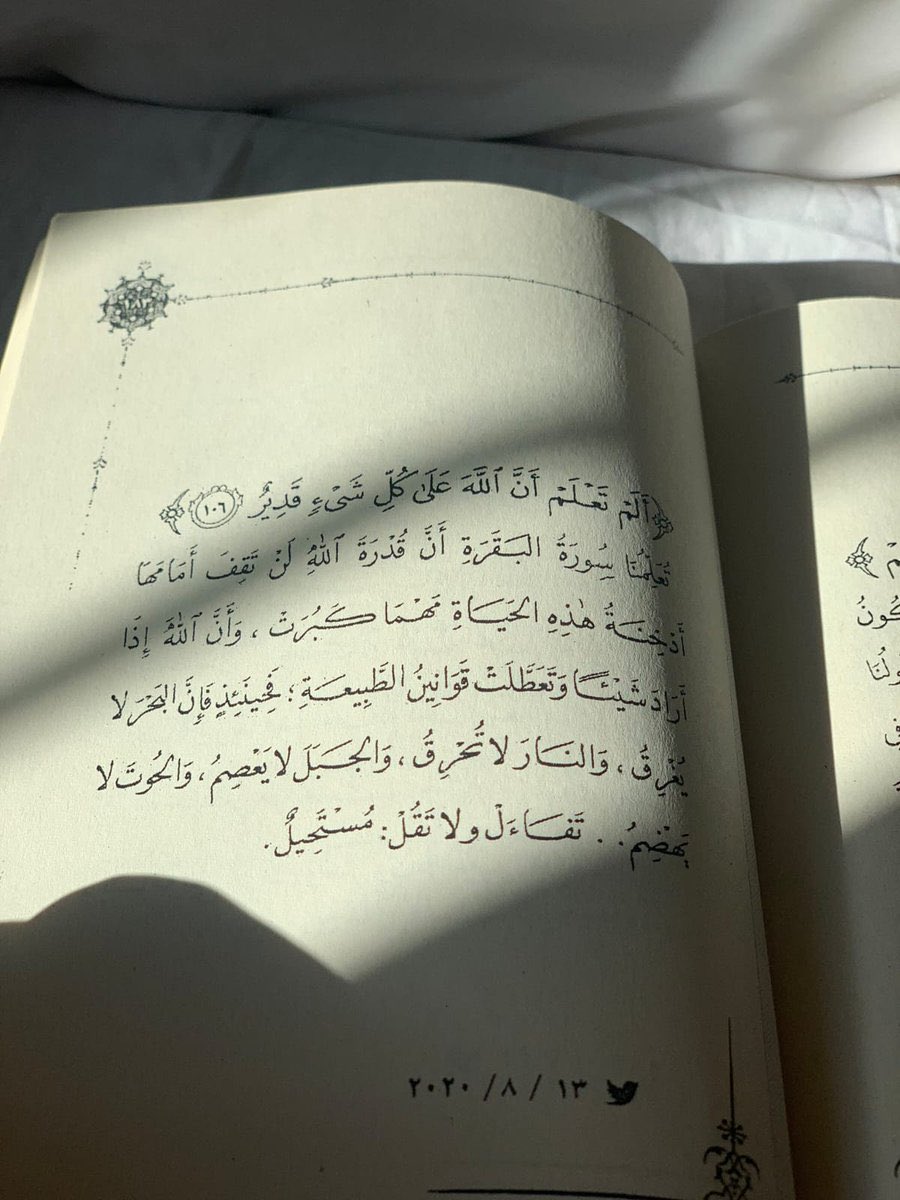 ﴿أَلَمْ تَعْلَمْ أَنَّ ٱللَّهَ عَلَىٰ كُلِّ شَىْءٍ قَدِيرٌ ١٠٦﴾
تُعَلِّمُنَا سُورَةُ البَقَرَةِ أَنَّ قُدْرَةَ ٱللهِ لَنْ تَقِفَ أَمَامَهَا
أَدْخِنَةُ هٰذِهِ الحَيَاةِ مَهْمَا كَبُرَتْ، وَأَنَّ ٱللهَ إِذَا
أَرَادَ شَيْئًا وَتَعَطَّلَتْ قَوَانِينُ الطَّبِيعَةِ؛ فَحِينَئِذٍ فَإِنَّ البَحْرَ لا
يُغْرِقُ، وَالنَارَ لا تُحْرِقُ، وَالجَبَلَ لا يَعْصِمُ، وَالحُوتَ لا
يَهْضِمُ.. تَفَاءَلْ ولا تَقُلْ: مُسْتَحِيلٌ.
١٣ / ٨ / ٢٠٢٠